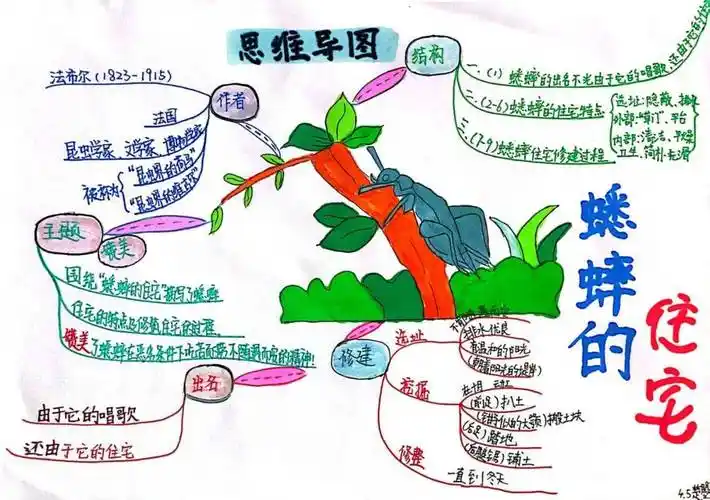 思维导图
蟋蟀的
住宅
作者
法布尔(1823-1915)
法国
昆虫学家、文学家、博物学家
被称为
"昆虫界的荷马"
结构
一、(1)蟋蟀的出名不光由于它的唱歌,还由于它的住
二、(2-6)蟋蟀的住宅特点
选址:隐蔽、排水
平台
内部:清洁、干燥
卫生、简朴
三、(7-9)蟋蟀住宅修建过程
主题
赞美
围绕"蟋蟀的住宅"描写了蟋蟀
住宅的特点及修筑住宅的过程
赞美了蟋蟀在恶劣条件下吃苦耐劳不随遇而安的精神!
出名
由于它的唱歌
还由于它的住宅
修建
选址
排水优良
有温和的阳光
(朝着阳光的堤岸)
挖掘
(前足)扒土
(钳子似的大颚)搬土块
(后足)踏地
铺土
修整
一直到冬天